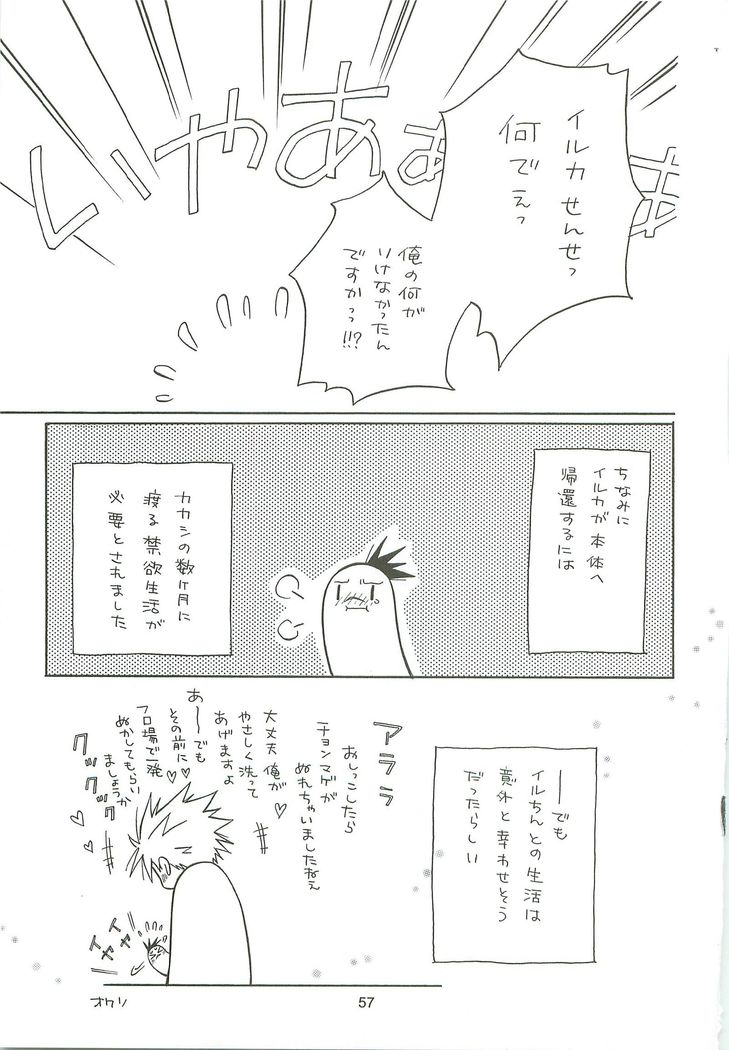 いやあああ
イルカせんせっ
何でぇっ
俺の何が
いけなかったん
ですかっっ!!!?
ちなみに
イルカが本体へ
帰還するには
カカシの数ヶ月に
渡る禁欲生活が
必要とされました
――でも
イルちんとの生活は
意外と幸わせそう
だったらしい
アララ
おしっこしたら
チョンマゲが
ぬれちゃいましたねぇ
大丈夫俺が
やさしく洗って
あげますよ
あ――でも
その前に
フロ場で一発
ぬかしてもらい
ましょうか
クックックッ
イヤイヤ
オワリ
57